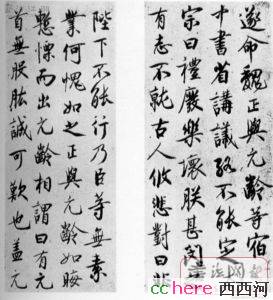 遂命魏正與元齡等宿
中書省講議終不能定
宗曰禮廢樂壞朕甚
有志不就古人攸悲對曰非
陛下不能行乃臣等無素
業何愧如之正與元齡如晦
慙慄而出元齡相謂曰有元
首無股肱誠可歎也盖元
cchere 西西河